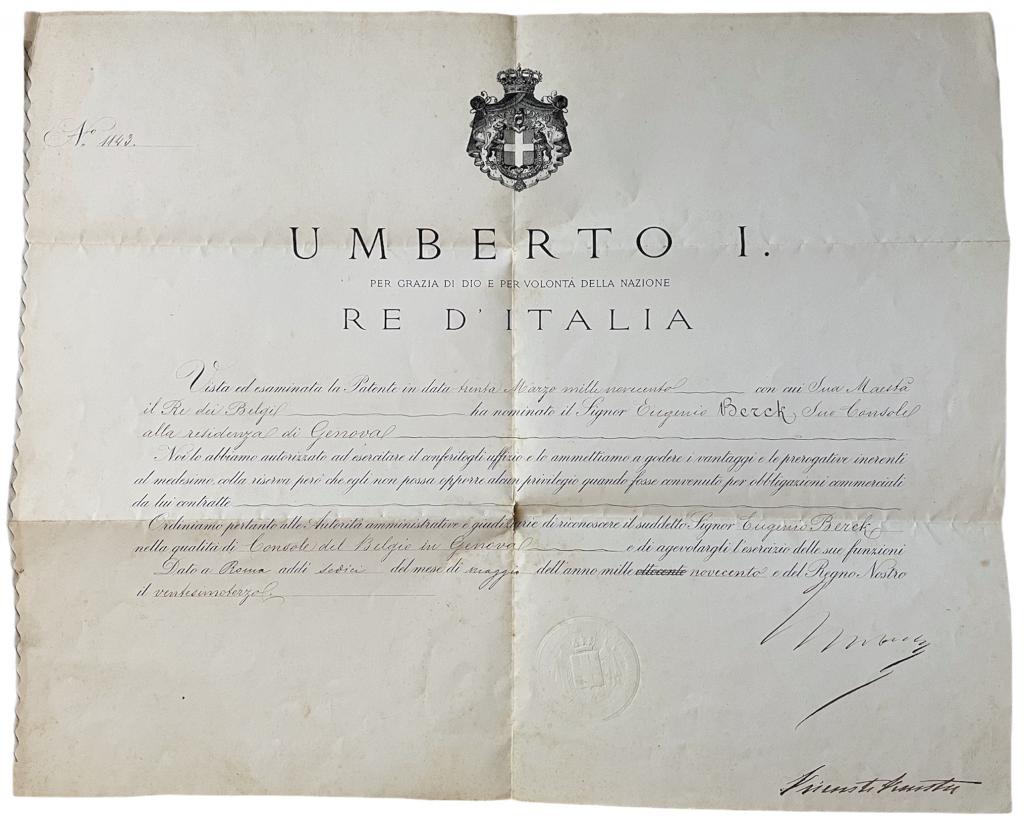 No. 1143.
UMBERTO I.
PER GRAZIA DI DIO E PER VOLONTÀ DELLA NAZIONE
RE D'ITALIA
Vista ed esaminata la Patente in data trenta Marzo mille novecento con cui Sua Maestà
il Re dei Belgi ha nominato il Signor Eugenio Berck, Suo Console
alla residenza di Genova
Noi lo abbiamo autorizzato ad esercitare il conferitogli uffizio e lo ammettiamo a godere i vantaggi e le prerogative inerenti
al medesimo, colla riserva però che egli non possa opporre alcun privilegio quando fosse convenuto per obbligazioni commerciali
da lui contratte
Ordiniamo pertanto alle Autorità amministrative e giudiziarie di riconoscere il suddetto Signor Eugenio Berck
nella qualità di Console del Belgio in Genova e di agevolargli l'esercizio delle sue funzioni
Dato a Roma addì sedici del mese di maggio dell'anno mille ottocento novecento e del Regno Nostro
il ventesimoterzo.
Umberto